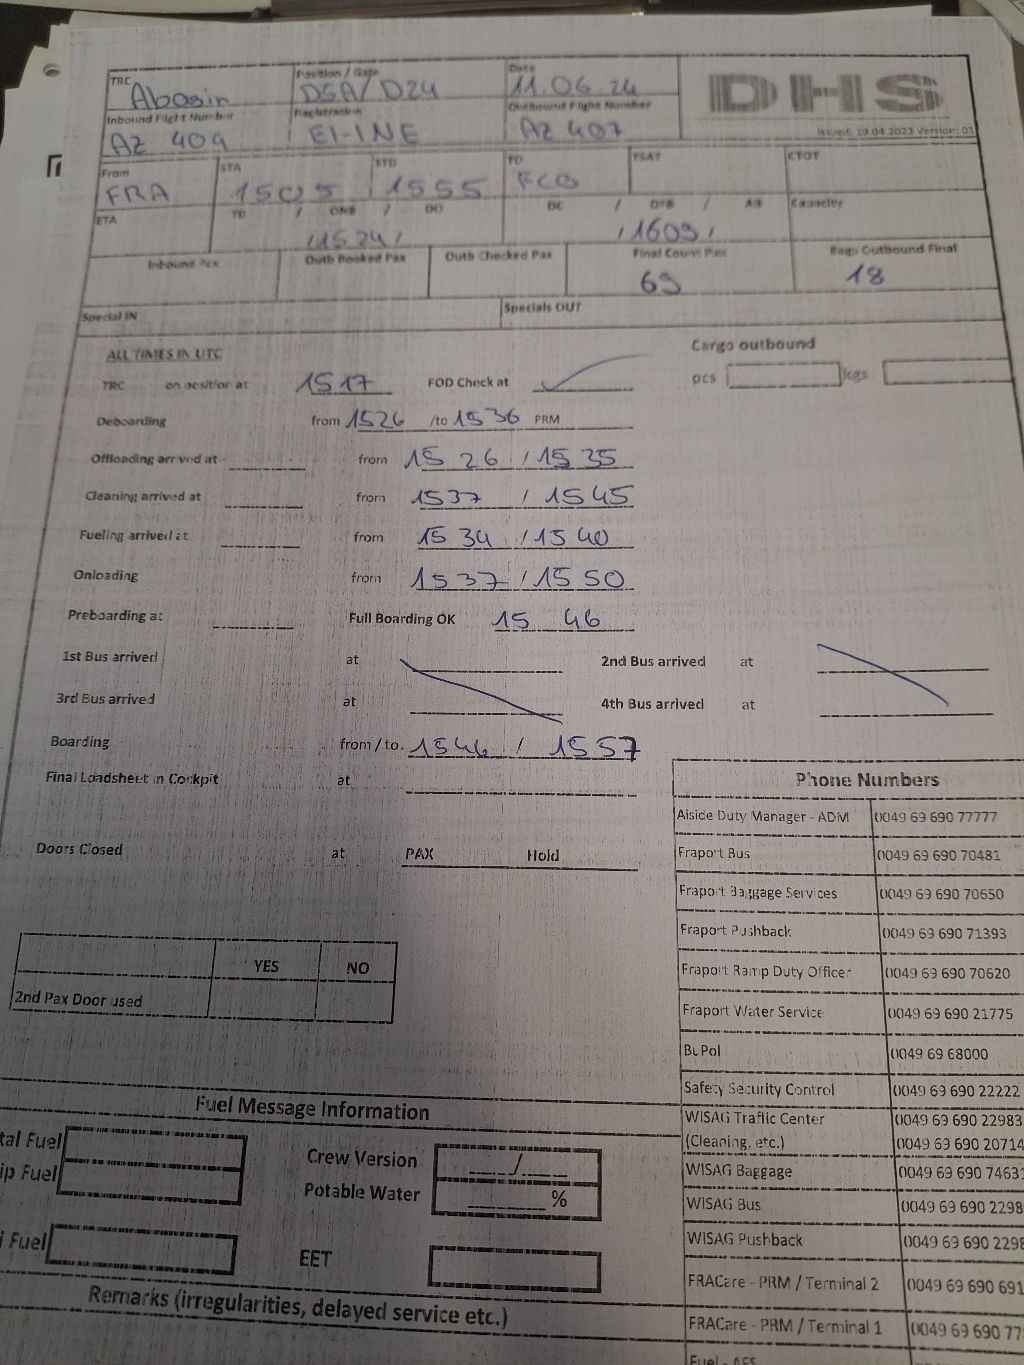 TRC Abasin Position / Gate D5A/D24 Date 11.06.24 DHS
Inbound Flight Number AZ 409 Registration EI-INE Outbound Flight Number AZ 407 Issued: 19.04.2023 Version: 01
From FRA STA 1505 STD 1555 TO FCO TSAT CTOT
ETA TD / ONB / DO /1524/ DC / OFB / AB /1609/ Capacity
Inbound Pax Outb Booked Pax Outb Checked Pax Final Count Pax 69 Bags Outbound Final 18
Special IN Specials OUT
ALL TIMES IN UTC Cargo outbound
TRC on position at 1517 FOD Check at pcs kgs
Deboarding from 1526 /to 1536 PRM
Offloading arrived at from 15 26 / 15 35
Cleaning arrived at from 1537 / 1545
Fueling arrived at from 15 34 / 15 40
Onloading from 1537 / 1550
Preboarding at Full Boarding OK 15 46
1st Bus arrived at 2nd Bus arrived at
3rd Bus arrived at 4th Bus arrived at
Boarding from / to. 1546 / 1557
Final Loadsheet in Cockpit at
Doors Closed at PAX Hold
YES NO
2nd Pax Door used
Phone Numbers
Aiside Duty Manager - ADM 0049 69 690 77777
Fraport Bus 0049 69 690 70481
Fraport Baggage Services 0049 69 690 70650
Fraport Pushback 0049 69 690 71393
Fraport Ramp Duty Officer 0049 69 690 70620
Fraport Water Service 0049 69 690 21775
BuPol 0049 69 68000
Safety Security Control 0049 69 690 22222
WISAG Traffic Center 0049 69 690 22983
(Cleaning, etc.) 0049 69 690 20714
WISAG Baggage 0049 69 690 74631
WISAG Bus 0049 69 690 2298
WISAG Pushback 0049 69 690 229
FRACare - PRM / Terminal 2 0049 69 690 691
FRACare - PRM / Terminal 1 0049 69 690 77
Fuel - AFS
Fuel Message Information
tal Fuel Crew Version /
ip Fuel Potable Water %
i Fuel EET
Remarks (irregularities, delayed service etc.)